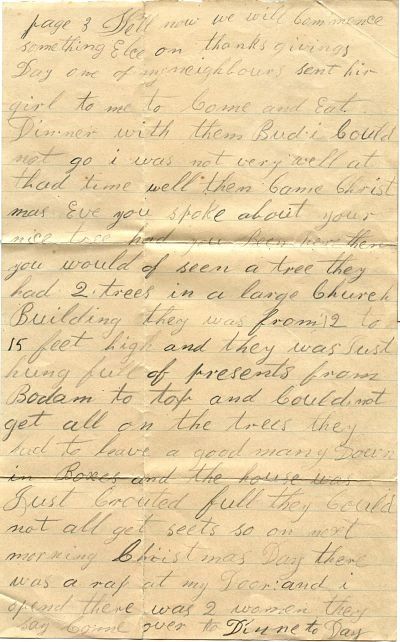 page 3 Well now we will Commence
something Elce on thanks givings
Day one of my neighbours sent hir
girl to me to Come and Eat
Dinner with them Bud i Could
not go i was not very well at
thad time well them Came Christ
mas Eve you spoke about your
nice tree had you been her then
you would of seen a tree they
had 2 trees in a large Church
Building they was from 12 to
15 feet high and they was Just
hung full of presents from
Bodam to top and Could not
get all on the trees they
had to leave a good many Down
in Boxes and the house was
Just Crouted full they Could
not all get seets so on next
morning Christmas Day there
was a rap at my Door and i
opend there was 2 women they
say Come over to Dinne to Day